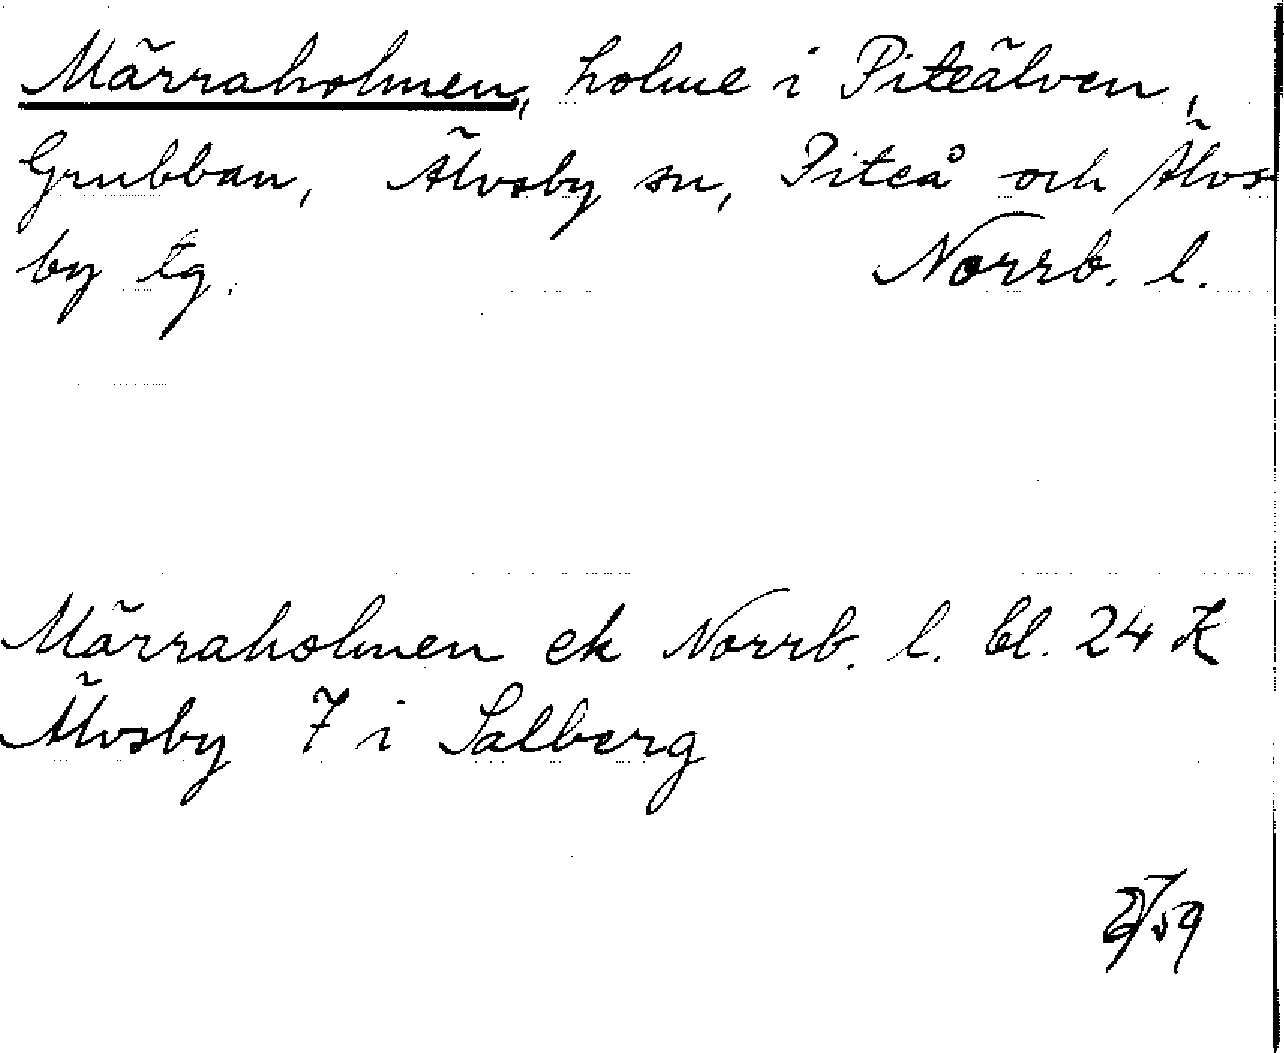 Märraholmen, holme i Piteälven,
Grubban, Älvsby sn, Piteå och Älvs-
by tg. Norrb. l.
Märraholmen ek Norrb. l. bl. 24 K
Älvsby 7 i Salberg